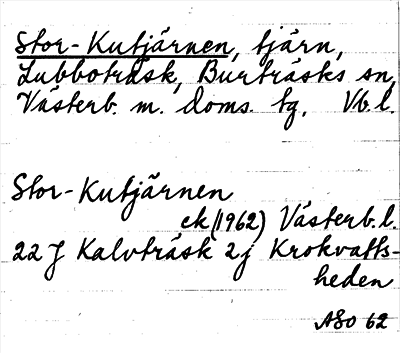 Stor-Kutjärnen, tjärn,
Lubboträsk, Burträsks sn,
Västerb. m. doms. tg. Vb.l.
Stor-Kutjärnen
ek (1962) Västerb.l.
22 J Kalvträsk 2j Krokvatts-
heden
ASO 62